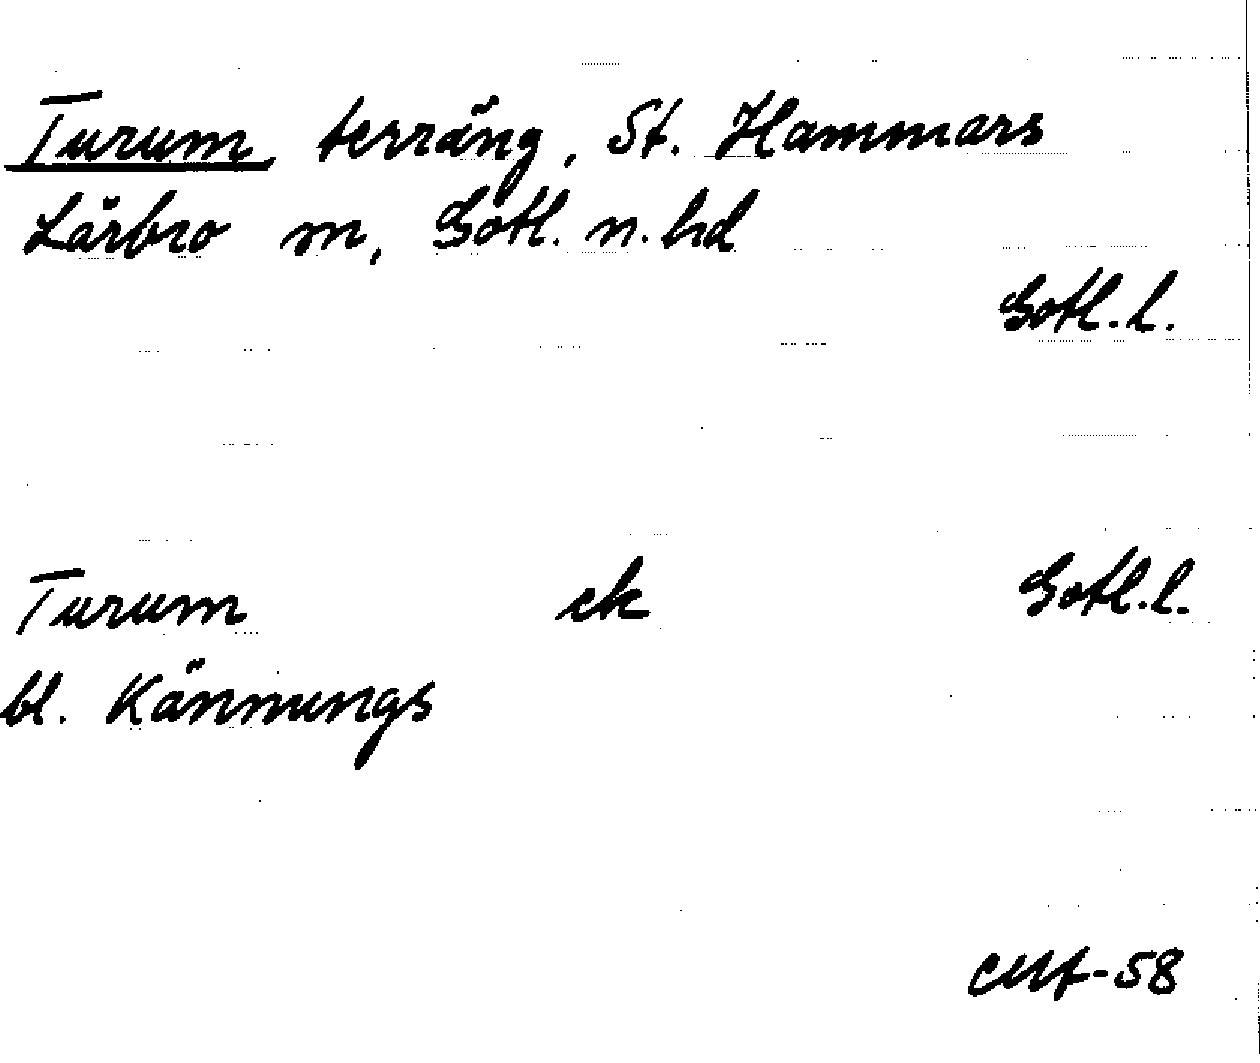 Turum, terräng, St. Hammars
Lärbro sn, Gotl. n. hd
Gotl. l.
Turum ek Gotl. l.
bl. Kännungs